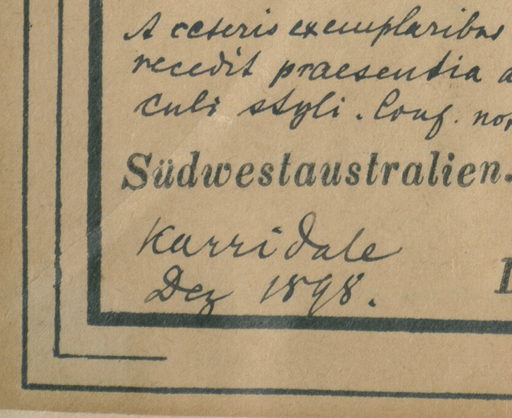 A ceteris exemplaribus
recedit praesentia
culi styli. Conf.
Südwestaustralien.
Karridale
Dez 1898.